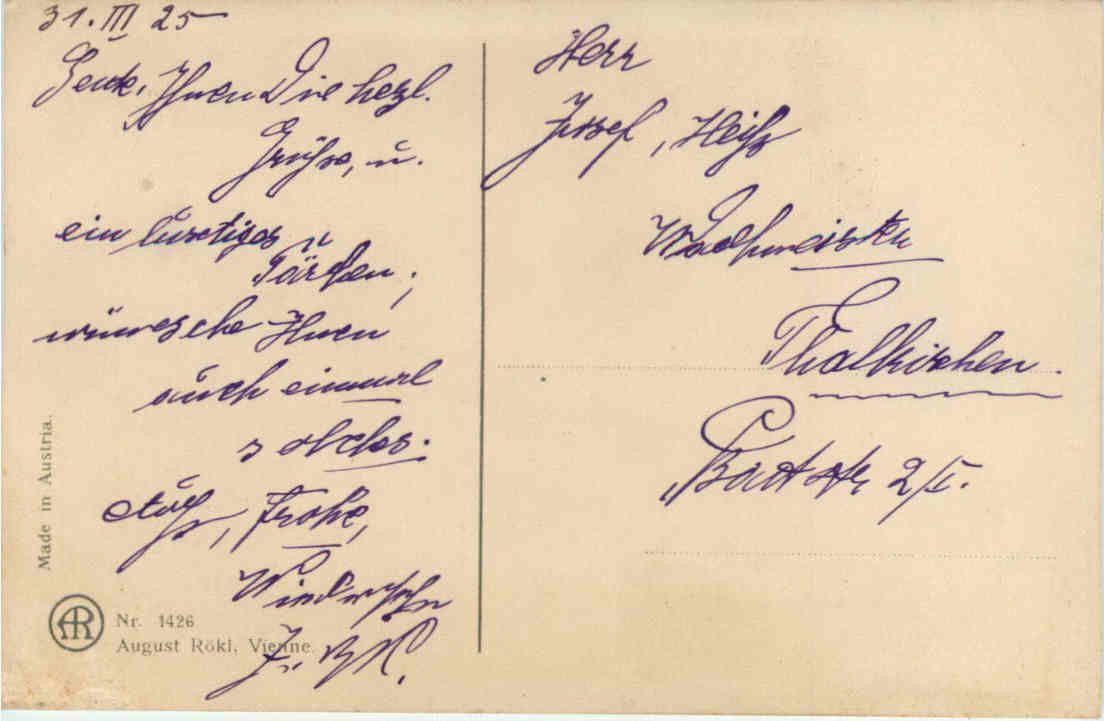 31. III 25
Sende, Ihnen Die herzl.
Grüße, u.
ein lustiges
Pärchen,
wünsche Ihnen
auch einmal
solches.
Auf, Frohe,
Wiedersehn
Herr
Josef, Heiß
Wachmeister
Thalkirchen.
Badstr 2/I.
Made in Austria.
AR
Nr. 1426
August Rökl, Vienne.